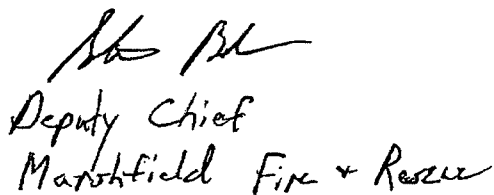 Deputy Chief
Marshfield Fire + Rescue